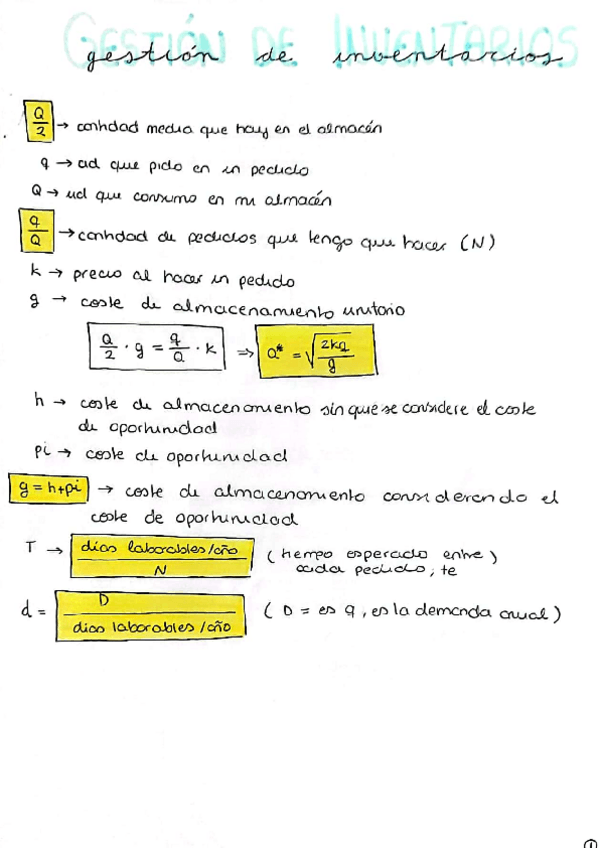 GESTIÓN DE INVENTARIOS
gestión de inventarios
Q/2 → cantidad media que hay en el almacén
q → ud que pido en un pedido
Q → ud que consumo en mi almacén
q/Q → cantidad de pedidos que tengo que hacer (N)
k → precio al hacer un pedido
g → coste de almacenamiento unitario
Q/2 · g = q/Q · k ⇒ Q* = √(2kq/g)
h → coste de almacenamiento sin que se considere el coste
de oportunidad
pi → coste de oportunidad
g = h+pi → coste de almacenamiento considerando el
coste de oportunidad
T → días laborables/año / N (tiempo esperado entre)
cada pedido, te
d = D / días laborables/año (D = es q, es la demanda anual)
1